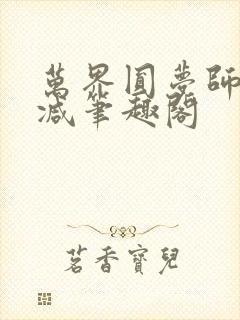 萬界圓夢師
減筆趣閣
茗香寶兒